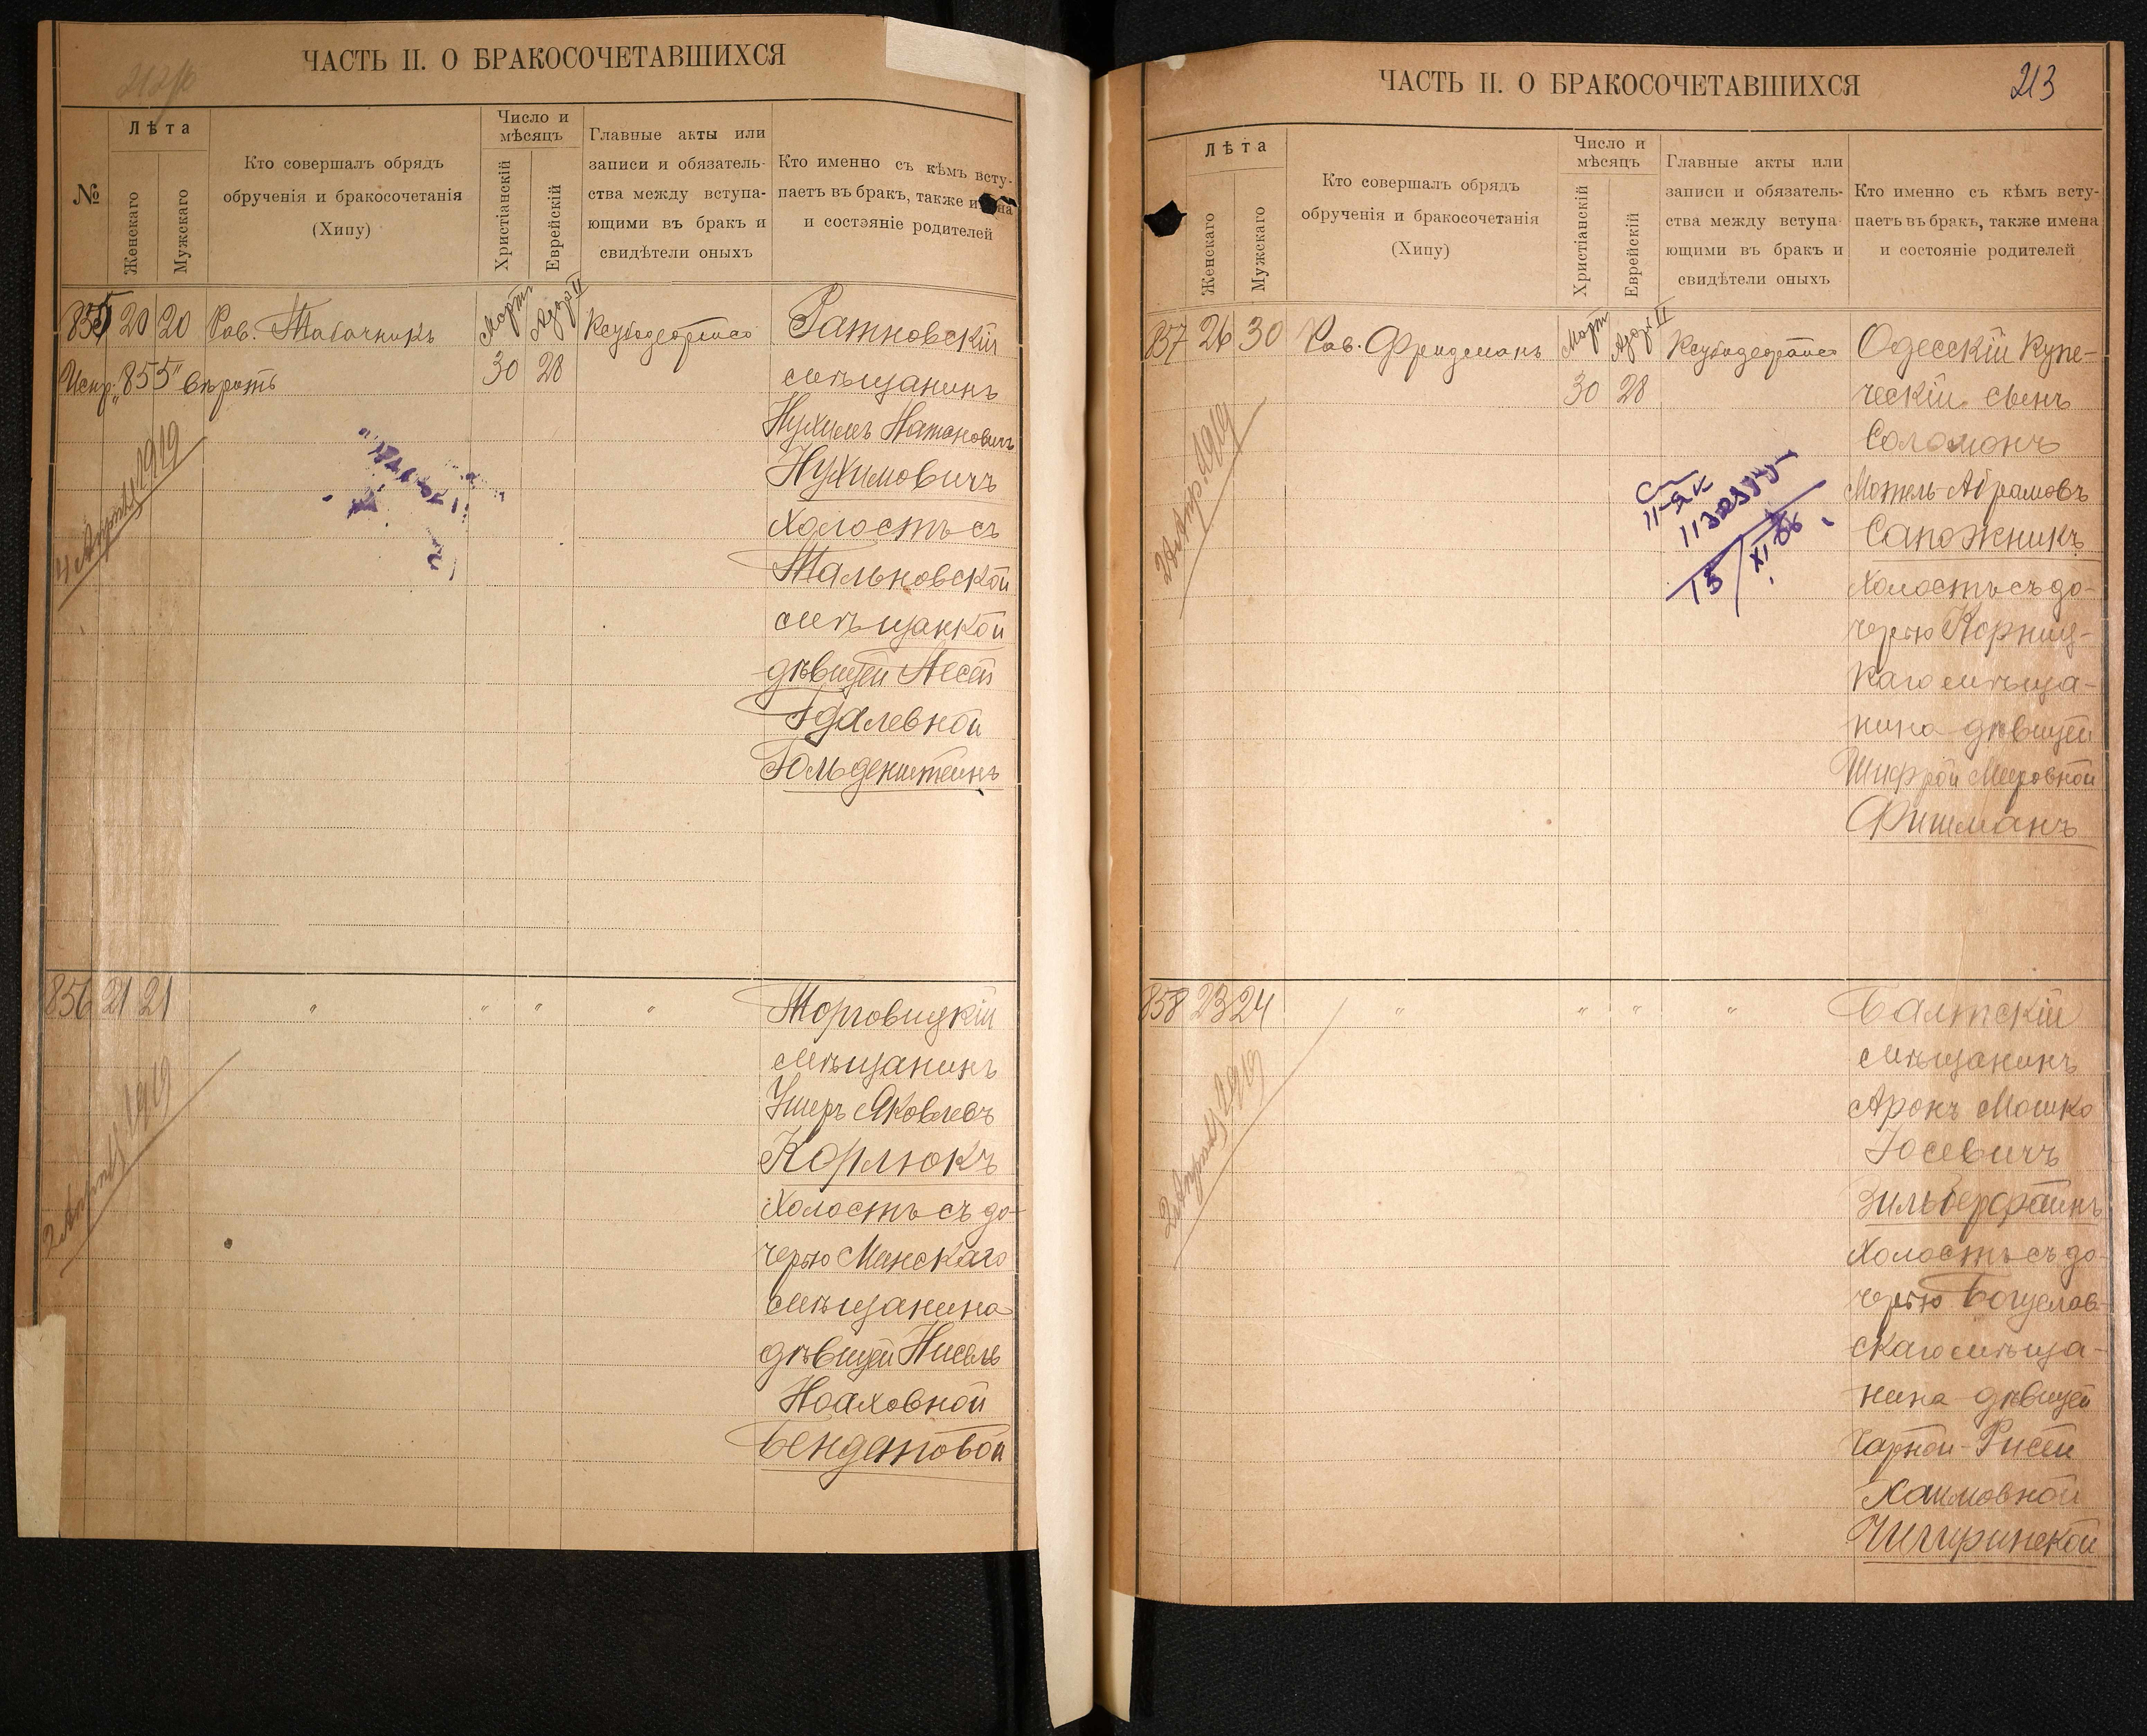 ЧАСТЬ II. О БРАКОСОЧЕТАВШИХСЯ
№
Лѣта
Женскаго
Мужскаго
Кто совершалъ обрядъ
обрученія и бракосочетанія
(Хипу)
Число и
мѣсяцъ
Христіанскій
Еврейскій
Главные акты или
записи и обязатель-
ства между вступа-
ющими въ бракъ и
свидѣтели оныхъ
Кто именно съ кѣмъ всту-
паетъ въ бракъ, также
и состояніе родителей
855 20 20 Рав. Табачникъ Мартъ 30 Адаръ II 28
Испр. „855" вѣрить
4 Апрѣля 1919
Ратновскій
мѣщанинъ
Нухимъ Натановичъ
Нухимовичъ
холостъ съ
Тальновской
мѣщанкой
дѣвицей Песей
Гдалевной
Гольденштейнъ
856 21 21 " " " "
2 Апрѣля 1919
Торговицкій
мѣщанинъ
Ушеръ Яковлевъ
Корлюкъ
холостъ съ до-
черью Минскаго
мѣщанина
дѣвицей Нисель
Ноаховной
Бендетовой
ЧАСТЬ II. О БРАКОСОЧЕТАВШИХСЯ
213
Лѣта
Женскаго
Мужскаго
Кто совершалъ обрядъ
обрученія и бракосочетанія
(Хипу)
Число и
мѣсяцъ
Христіанскій
Еврейскій
Главные акты или
записи и обязатель-
ства между вступа
ющими въ бракъ и
свидѣтели оныхъ
Кто именно съ кѣмъ всту-
паетъ въ бракъ, также имена
и состояніе родителей
857 26 30 Рав. Фридманъ Мартъ 30 Адаръ II 28
Апр. 1919
Одесскій купе-
ческій сынъ
Соломонъ
Мотель-Абрамовъ
Сапожникъ
холостъ съ до-
черью Корниц-
каго мѣща-
нина дѣвицей
Шифрой Мееровной
Фишманъ
858 23 24 " " " "
2 Апрѣля 1919
Балтскій
мѣщанинъ
Аронъ Мошко
Іосевичъ
Зильберфайнъ
холостъ съ до-
черью Богуслав-
скаго мѣща-
нина дѣвицей
Чарной-Рисей
Хаимовной
Чигиринской